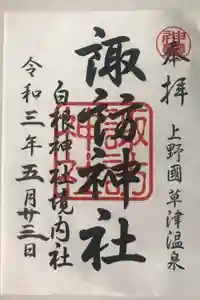 奉拝
上野國草津温泉
諏訪神社
白根神社境内社
令和三年五月廿三日